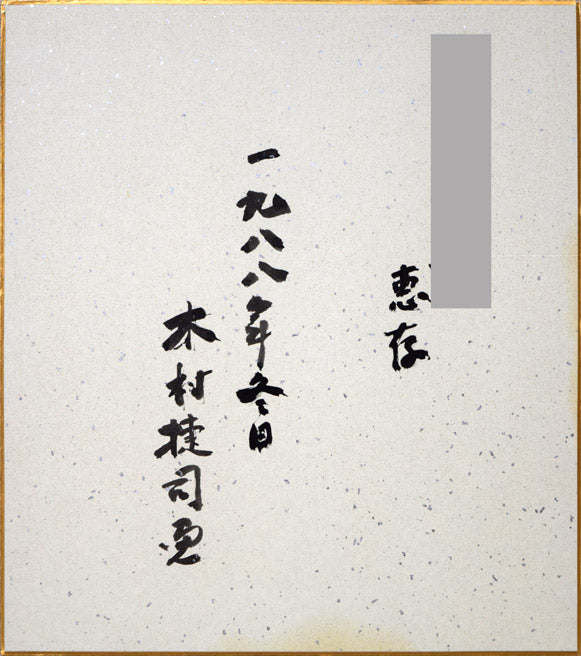 惠存
一九八八年冬日
木村捷司画